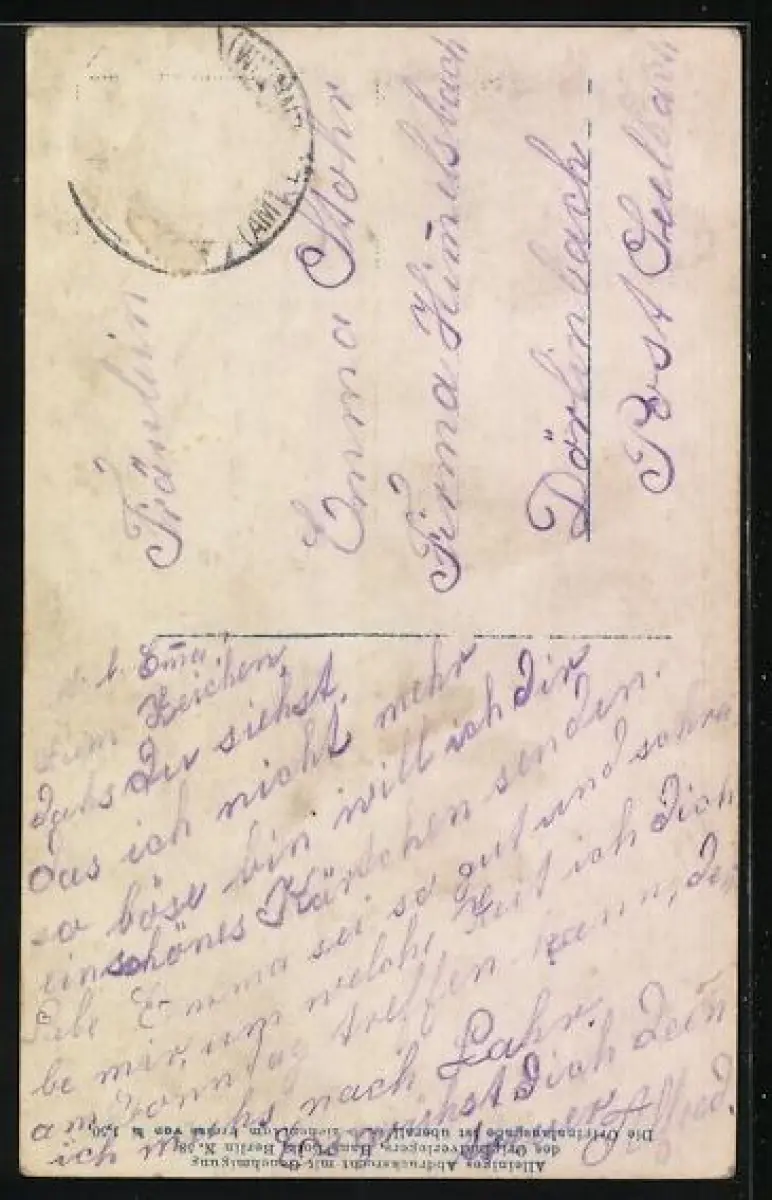 Fräulein
Emma Stohr
Firma Himelsbach
Dörlinbach
Post Seelbach
Ema
Zeichen,
dahs Du siehst.
das ich nicht mehr
so böse bin will ich dir
ein schönes Kärtchen senden.
Libe Emma sei so gut und schrei
be mir, um welche Zeit ich dich
am Sonntag treffen kann, den
ich muhs nach Lahr.
Es grühst Dich Dein
Alfred.
Alleiniges Abdrucksrecht mit Genehmigung
des Originalverlegers, Berlin N. 38
Die Originalausgabe ist überall zum Preise von M 1,50